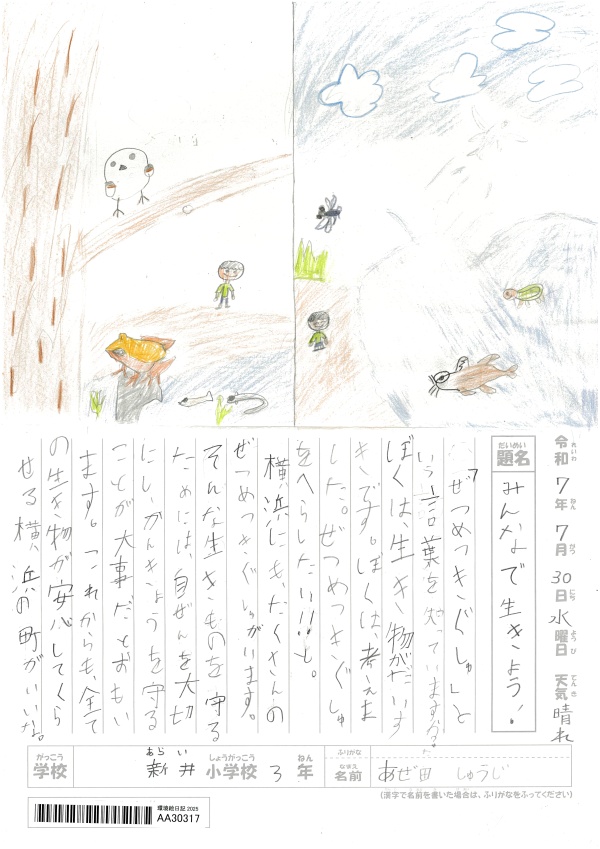 令和 7年 7月 30日 水曜日 天気 晴れ
れいわ ねん がつ にち ようび てんき
だいめい
題名
みんなで生きよう!
「ぜつめつきぐしゅ」と
いう言葉を知っていますか。
ぼくは、生き物がだいす
きです。ぼくは、考えま
した。ぜつめつきぐしゅ
をへらしたい!!と。
横浜にも、たくさんの
ぜつめつきぐしゅがいます。
そんな生きものを守る
ためには、自ぜんを大切
にしかんきょうを守る
ことが大事だとおもい
ます。これからも、全て
の生き物が安心してくら
せる横浜の町がいいな。
がっこう あらい しょうがっこう ねん
学校 新井 小学校 3年
ふりがな
なまえ
名前 あぜ田 しゅうじ
(漢字で名前を書いた場合は、ふりがなをふってください)
環境絵日記 2025
AA30317